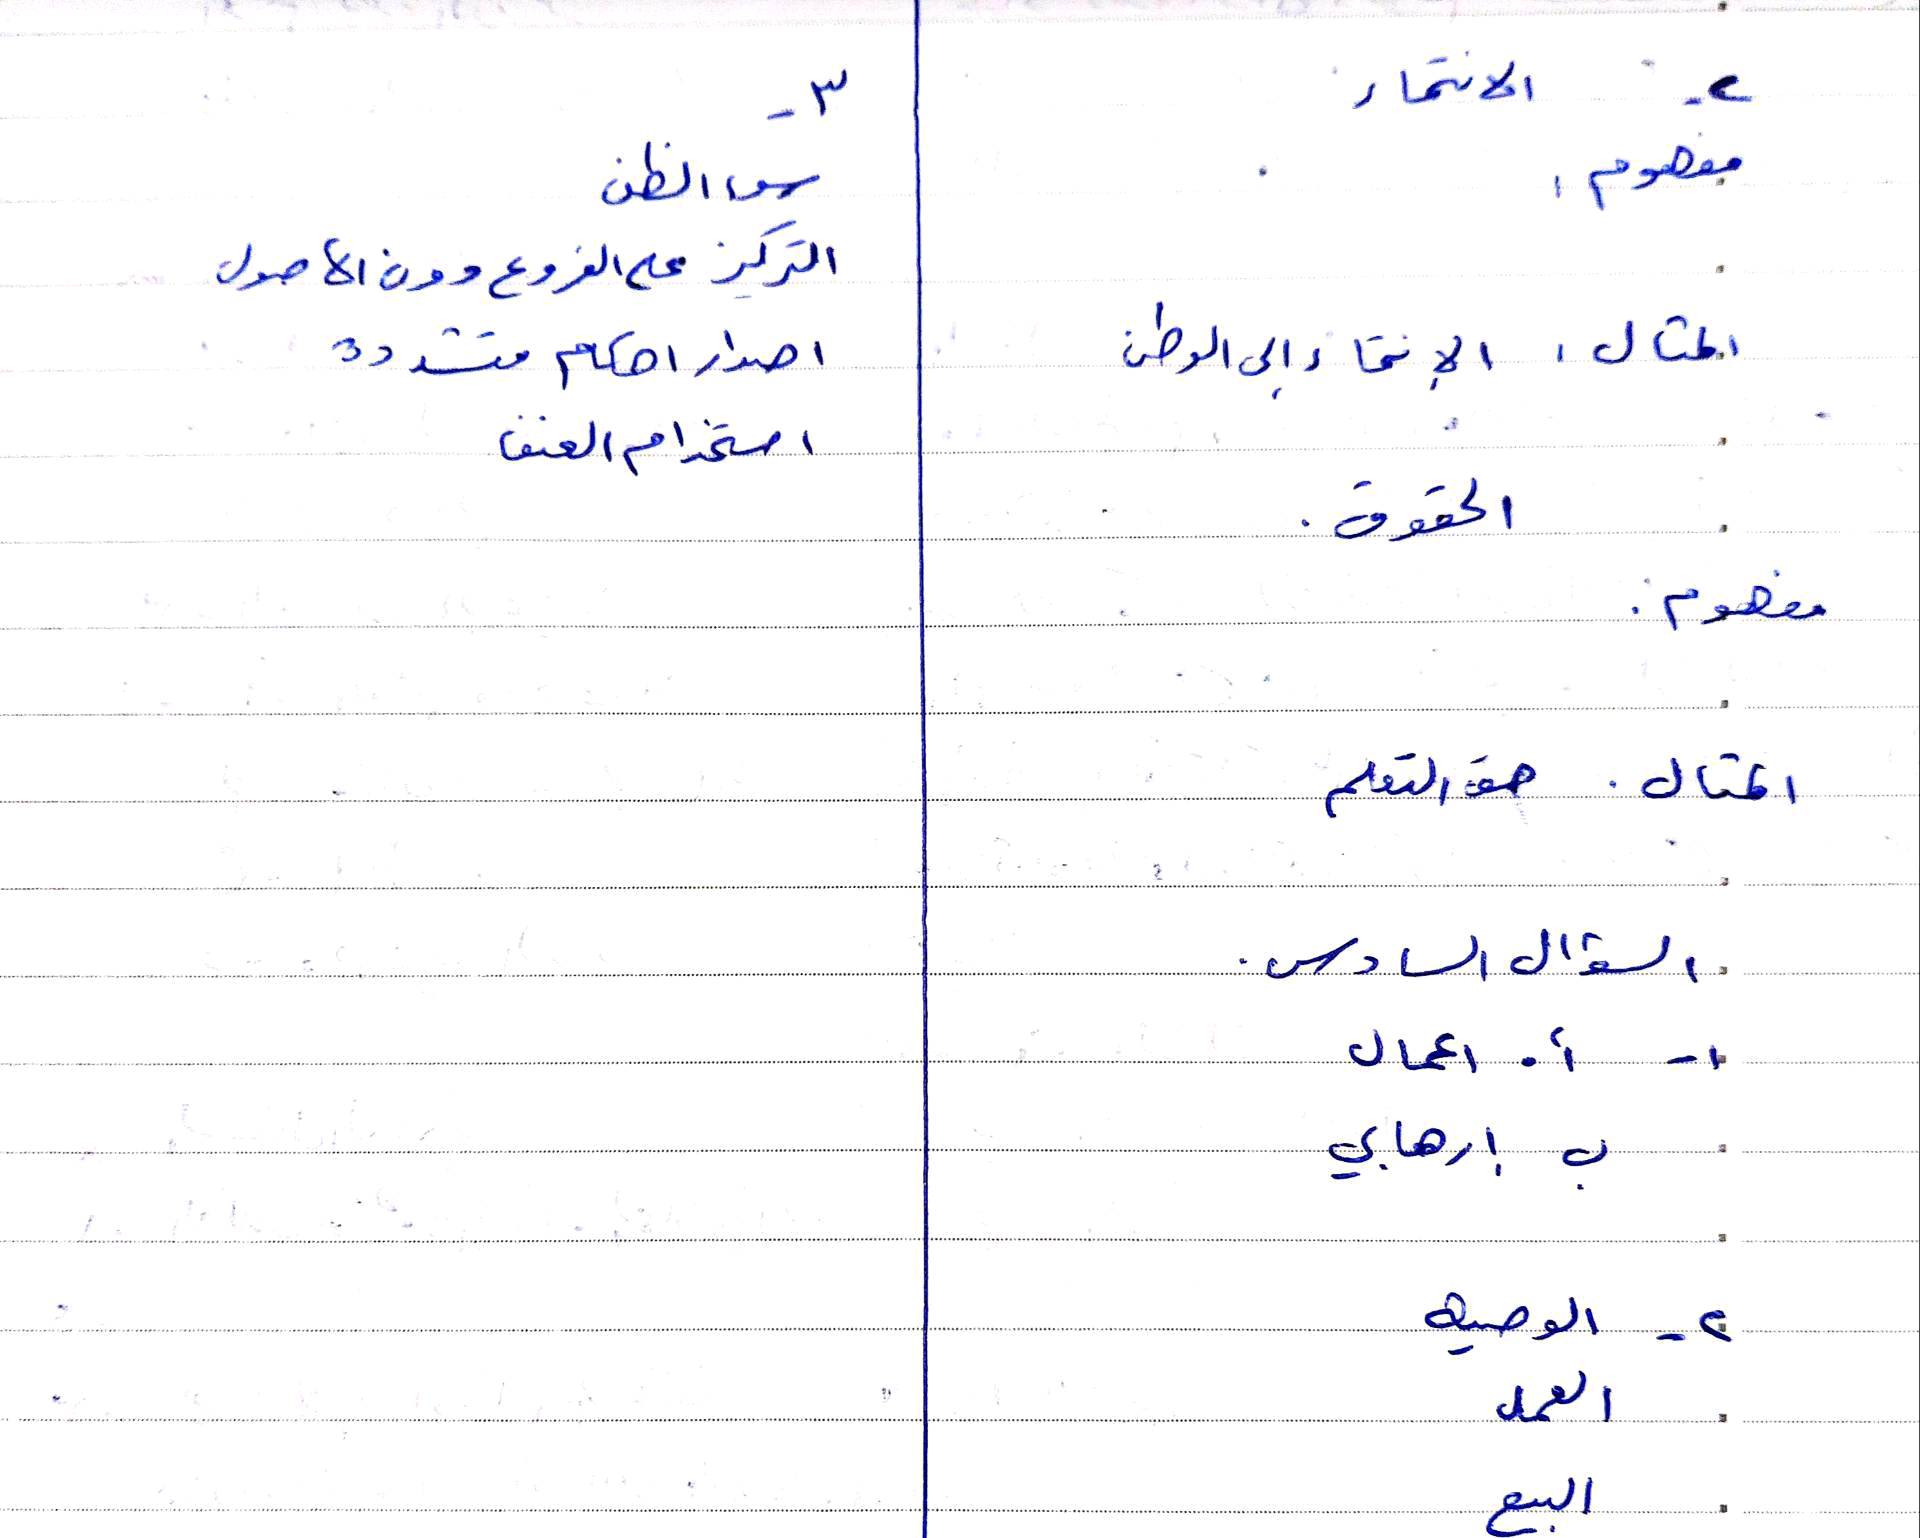 ٢- الانتماء
مفهوم :
المثال : الإنتماء إلى الوطن
الحقوق .
مفهوم :
المثال . حق التعلم
السؤال السادس .
١- أ. اعمال
ب إرهابي
٢- الوصيه
العمل
البيع
٣-
سوء الظن
التركيز على الفروع دون الأصول
اصدار احكام متشدده
استخدام العنف